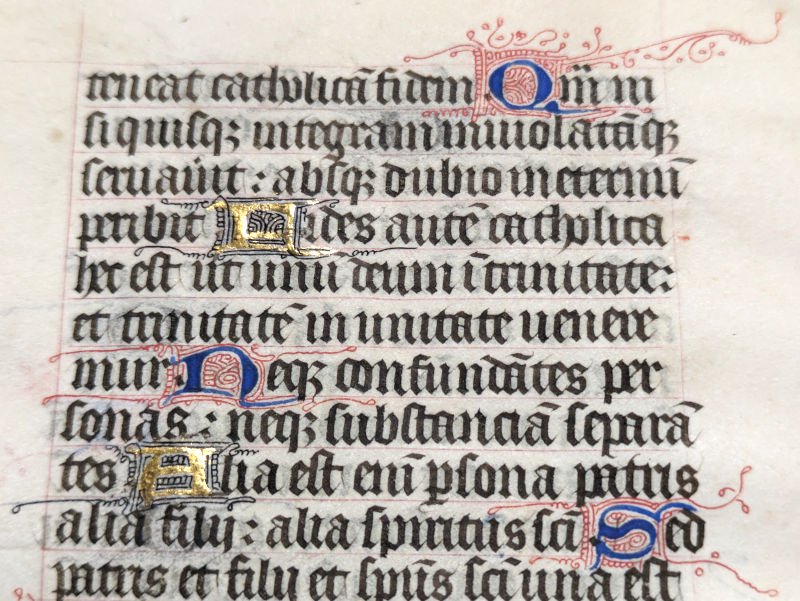 teneat catholicā fidem Qm̄ ni
si quisqꝫ integram inviolatāqꝫ
seruauīt : absqꝫ dubio in eternū
peribit Fides autē catholica
hec est ut unū deum ī trinitate:
et trinitatē in unitate uenere
mur. Neqꝫ confundātes per
sonās : neqꝫ substanciā separā
tes Alia est enī ꝑsona patris
alia filij : alia spiritus sc̄i Sed
patris et filij et sp̄us sc̄i una est